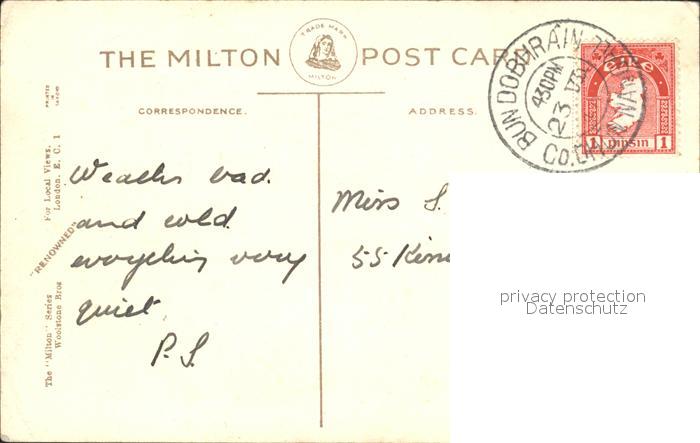 THE MILTON
TRADE MARK
MILTON
POST CARD
BUNDOBHRAIN
430PM
23
Co.
EIRE
1 PINSIN 1
CORRESPONDENCE.
ADDRESS.
PRINTED
IN
The "Milton" Series
Woolstone Bros
"RENOWNED"
For Local Views.
London. E. C. 1
Weather bad.
and cold.
everything very
quiet.
P.S.
Miss
55
privacy protection
Datenschutz